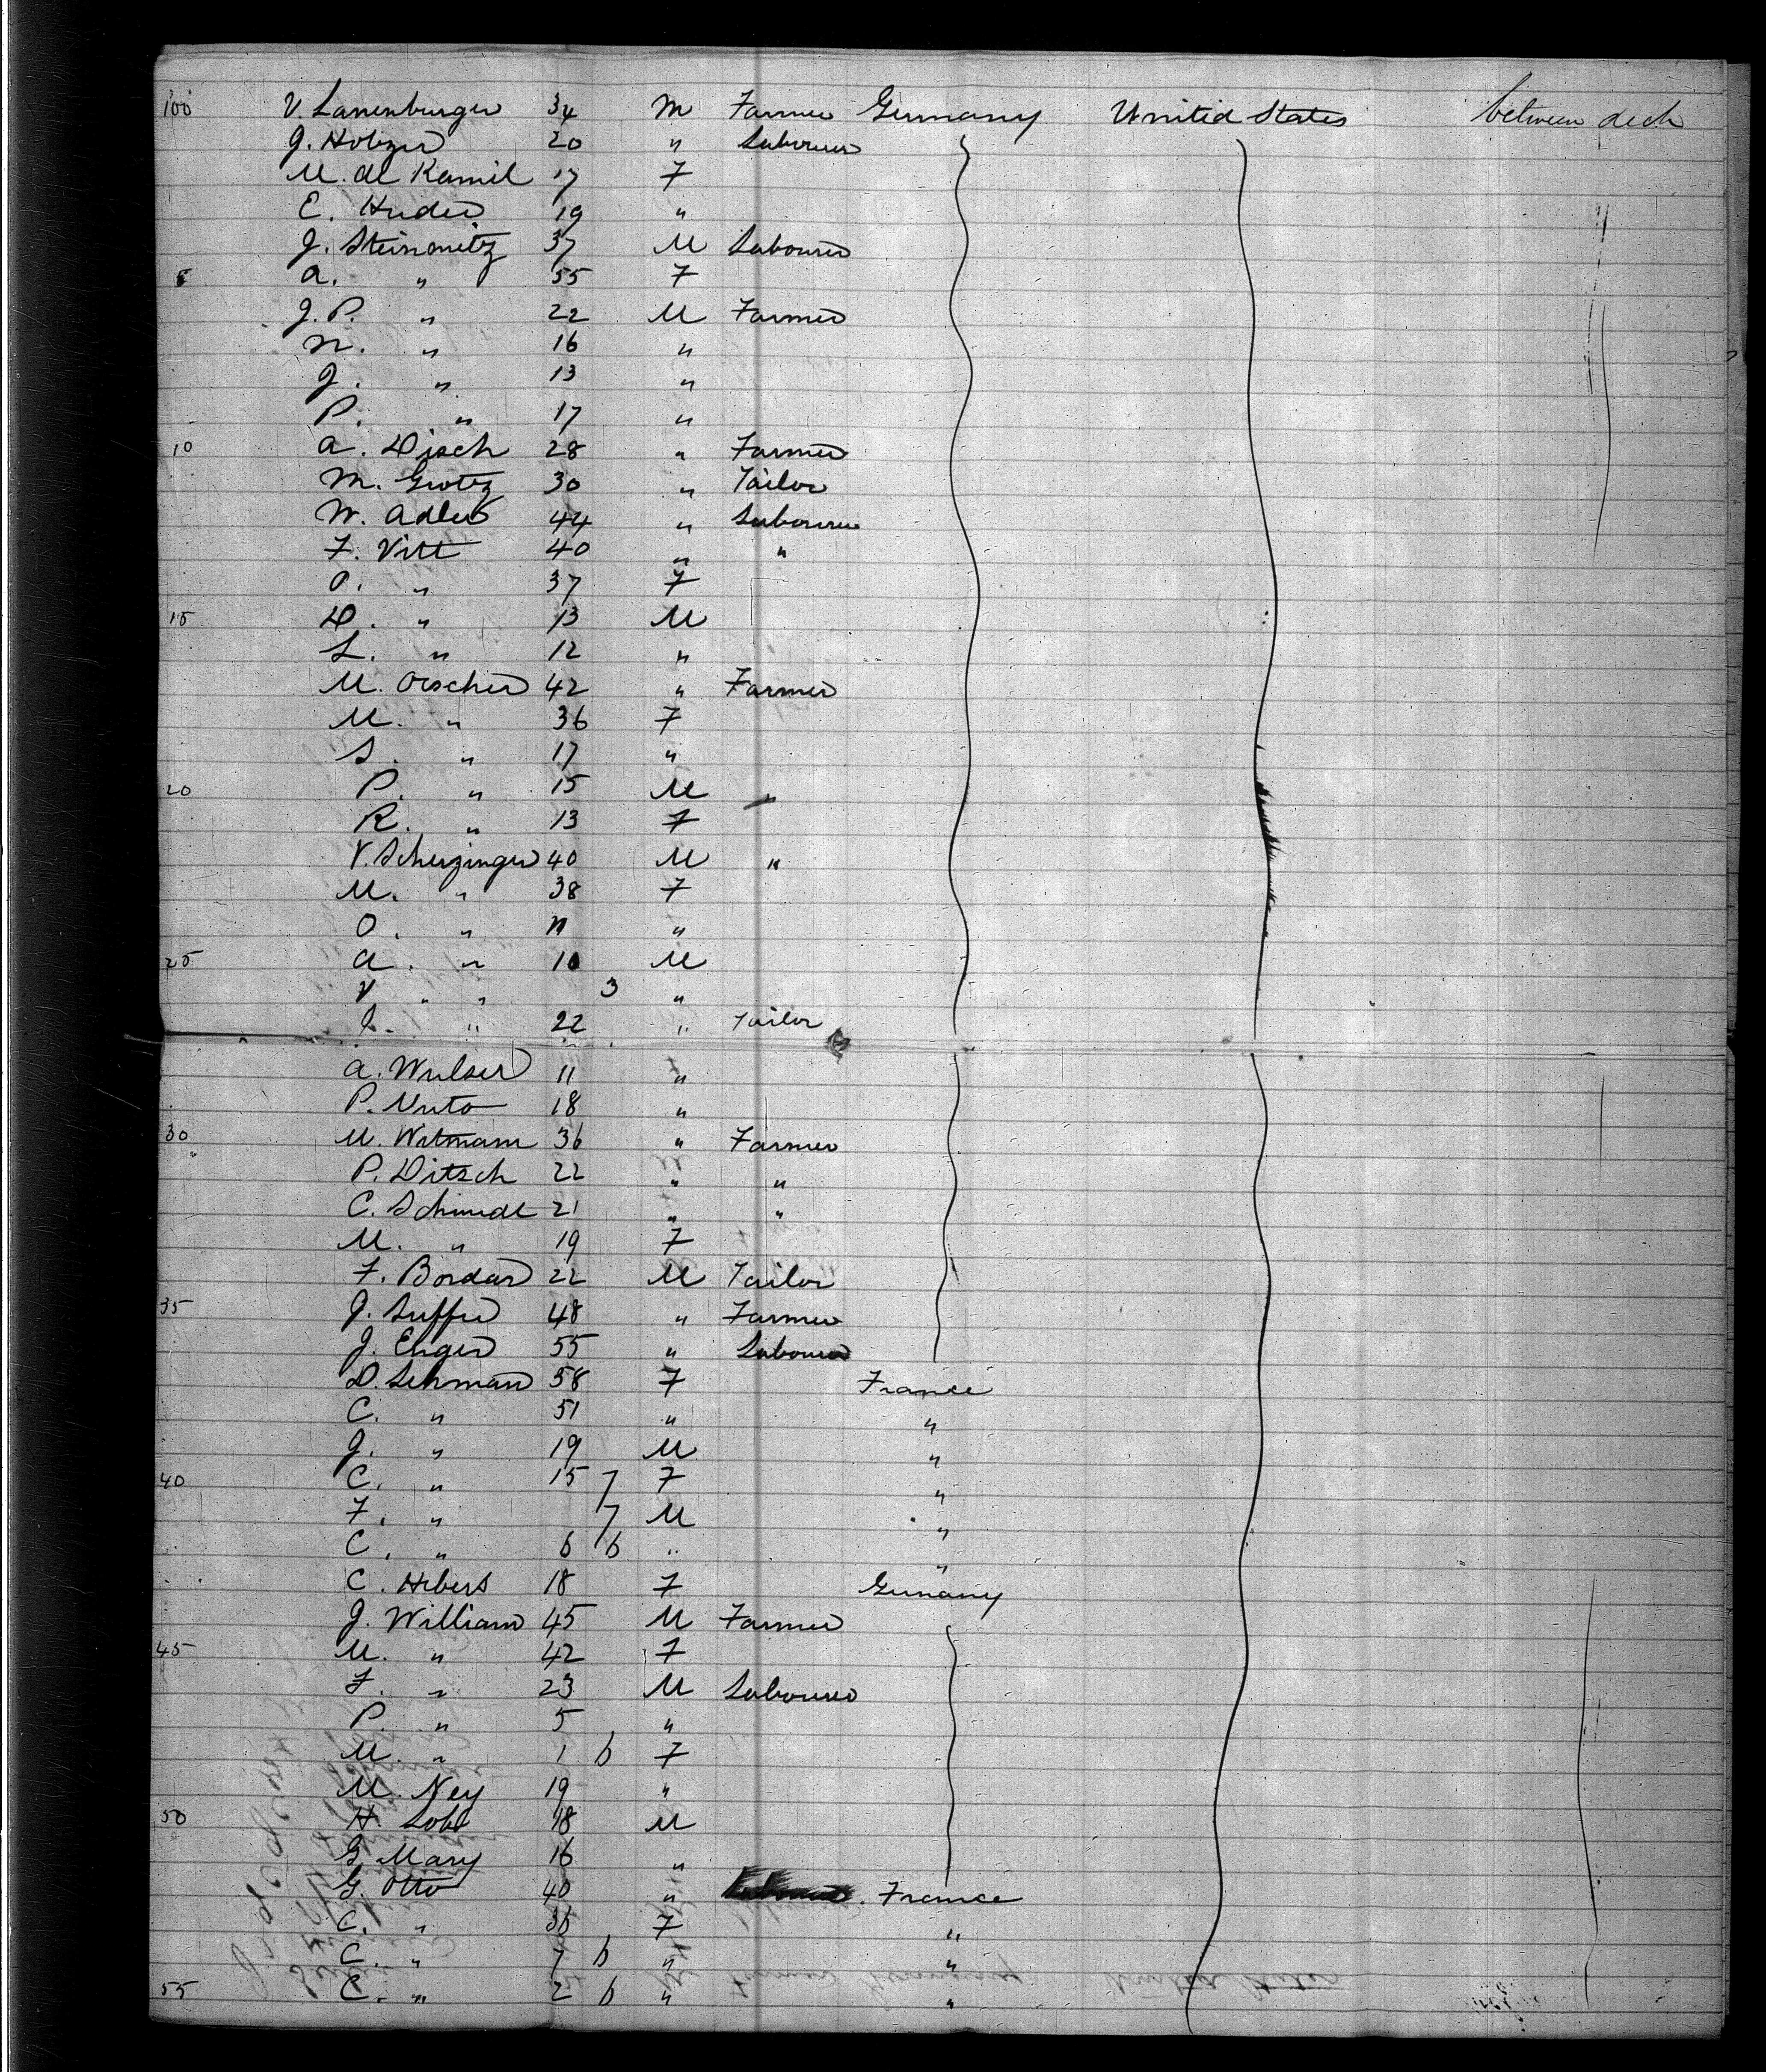 100 V. Lanenburger 34 M Farmer Germany United States between deck
J. Holizer 20 " Labourer
M. de Kamil 17 F
E. Huder 19 "
J. Steinmitz 37 M Labourer
5 A. " 55 F
J. P. " 22 M Farmer
N. " 16 "
J. " 13 "
P. " 17 "
10 A. Disch 28 " Farmer
M. Grotz 30 " Tailor
W. Adler 44 " Labourer
F. Vitt 40 " "
O. " 37 F
15 D. " 13 M
L. " 12 "
M. Orscher 42 " Farmer
M. " 36 F
S. " 17 "
20 P. " 15 M "
R. " 13 F
V. Scherzinger 40 M "
M. " 38 F
O. " 11 "
25 A. " 10 M
V " " 3 "
J. " 22 " Tailor
A. Wulser 11 "
P. Nuto 18 "
30 M. Watmann 36 " Farmer
P. Ditsch 22 " "
C. Schmidt 21 " "
M. " 19 F
F. Bordar 22 M Tailor
35 J. Suffer 48 " Farmer
J. Enger 55 " Labourer
D. Lehman 58 F France
C. " 51 " "
J. " 19 M "
40 C. " 15 7 F "
F. " 7 M "
C. " 6 6 " "
C. Hibert 18 F Germany
J. William 45 M Farmer
45 M. " 42 F
F. " 23 M Labourer
P. " 5 "
M. " 1 6 F
M. Ney 19 "
50 H Lobt 18 M
G. Mary 16 "
G. Otto 40 " France
C. " 36 F "
C. " 7 6 " "
55 C. " 2 6 " "